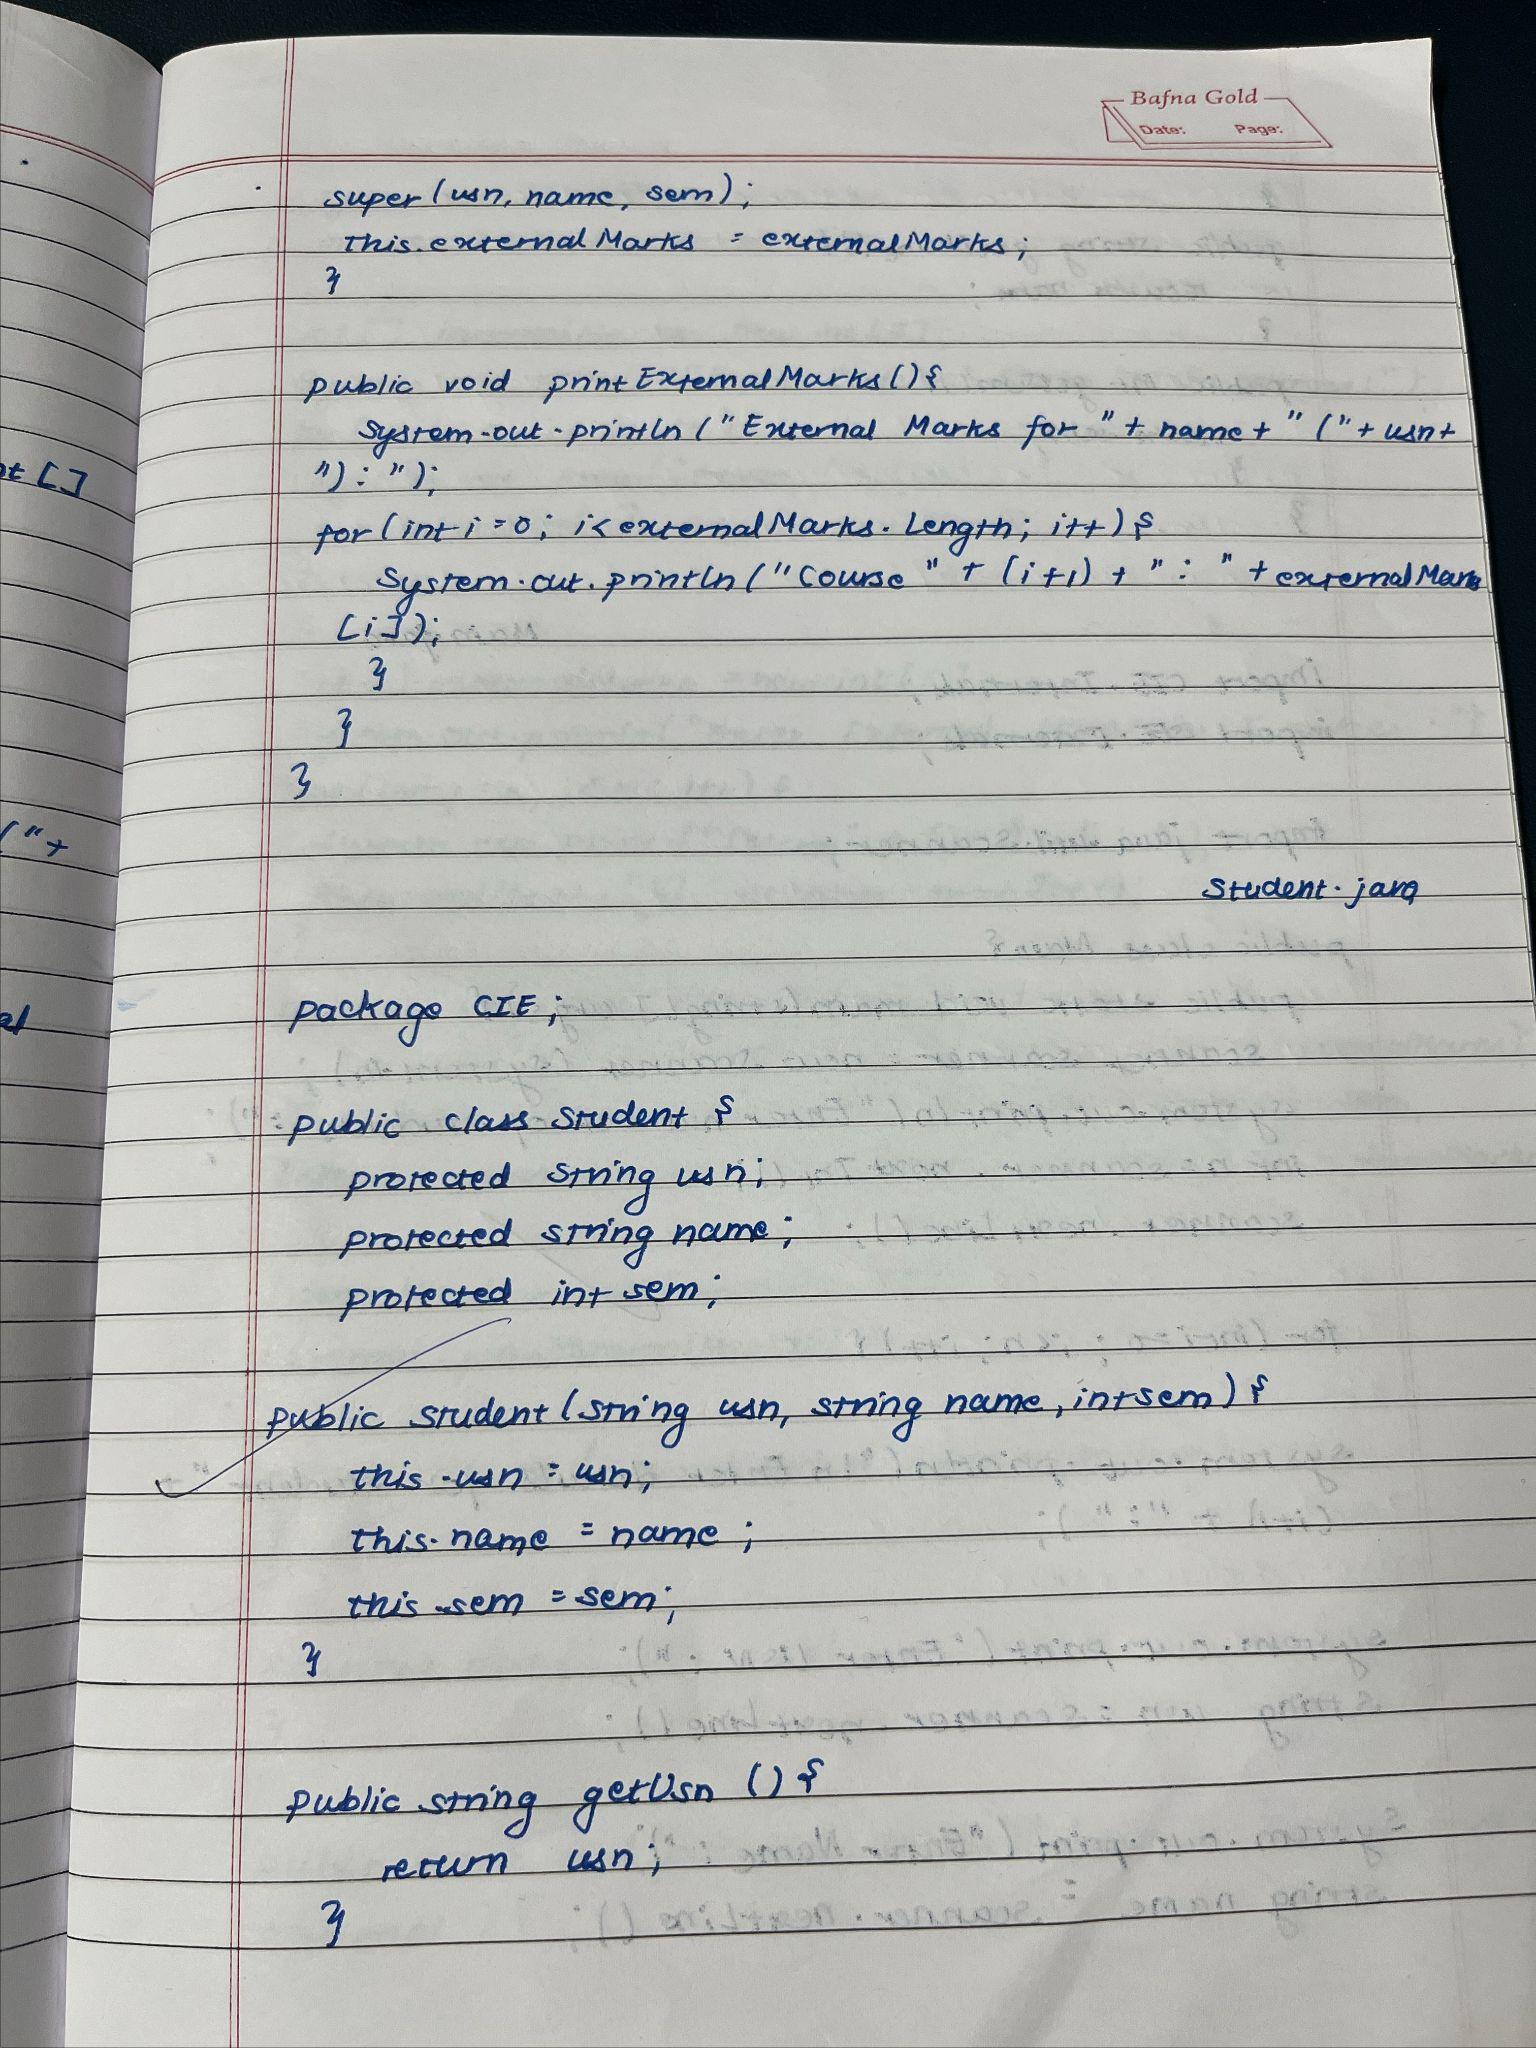 Bafna Gold
Date: Page:
super(usn, name, sem);
this.externalMarks = externalMarks;
}
public void printExternalMarks(){
System.out.println("External Marks for "+ name+" ("+ usn+
"):");
for(int i=0; i<externalMarks.Length; i++){
System.out.println("Course "+ (i+1) + " : " + externalMarks
[i]);
}
}
}
Student.java
package CIE;
public class Student {
protected String usn;
protected string name;
protected int sem;
public student(string usn, string name, int sem){
this.usn = usn;
this.name = name;
this.sem = sem;
}
public string getUsn (){
return usn;
}
nt []
("+
al